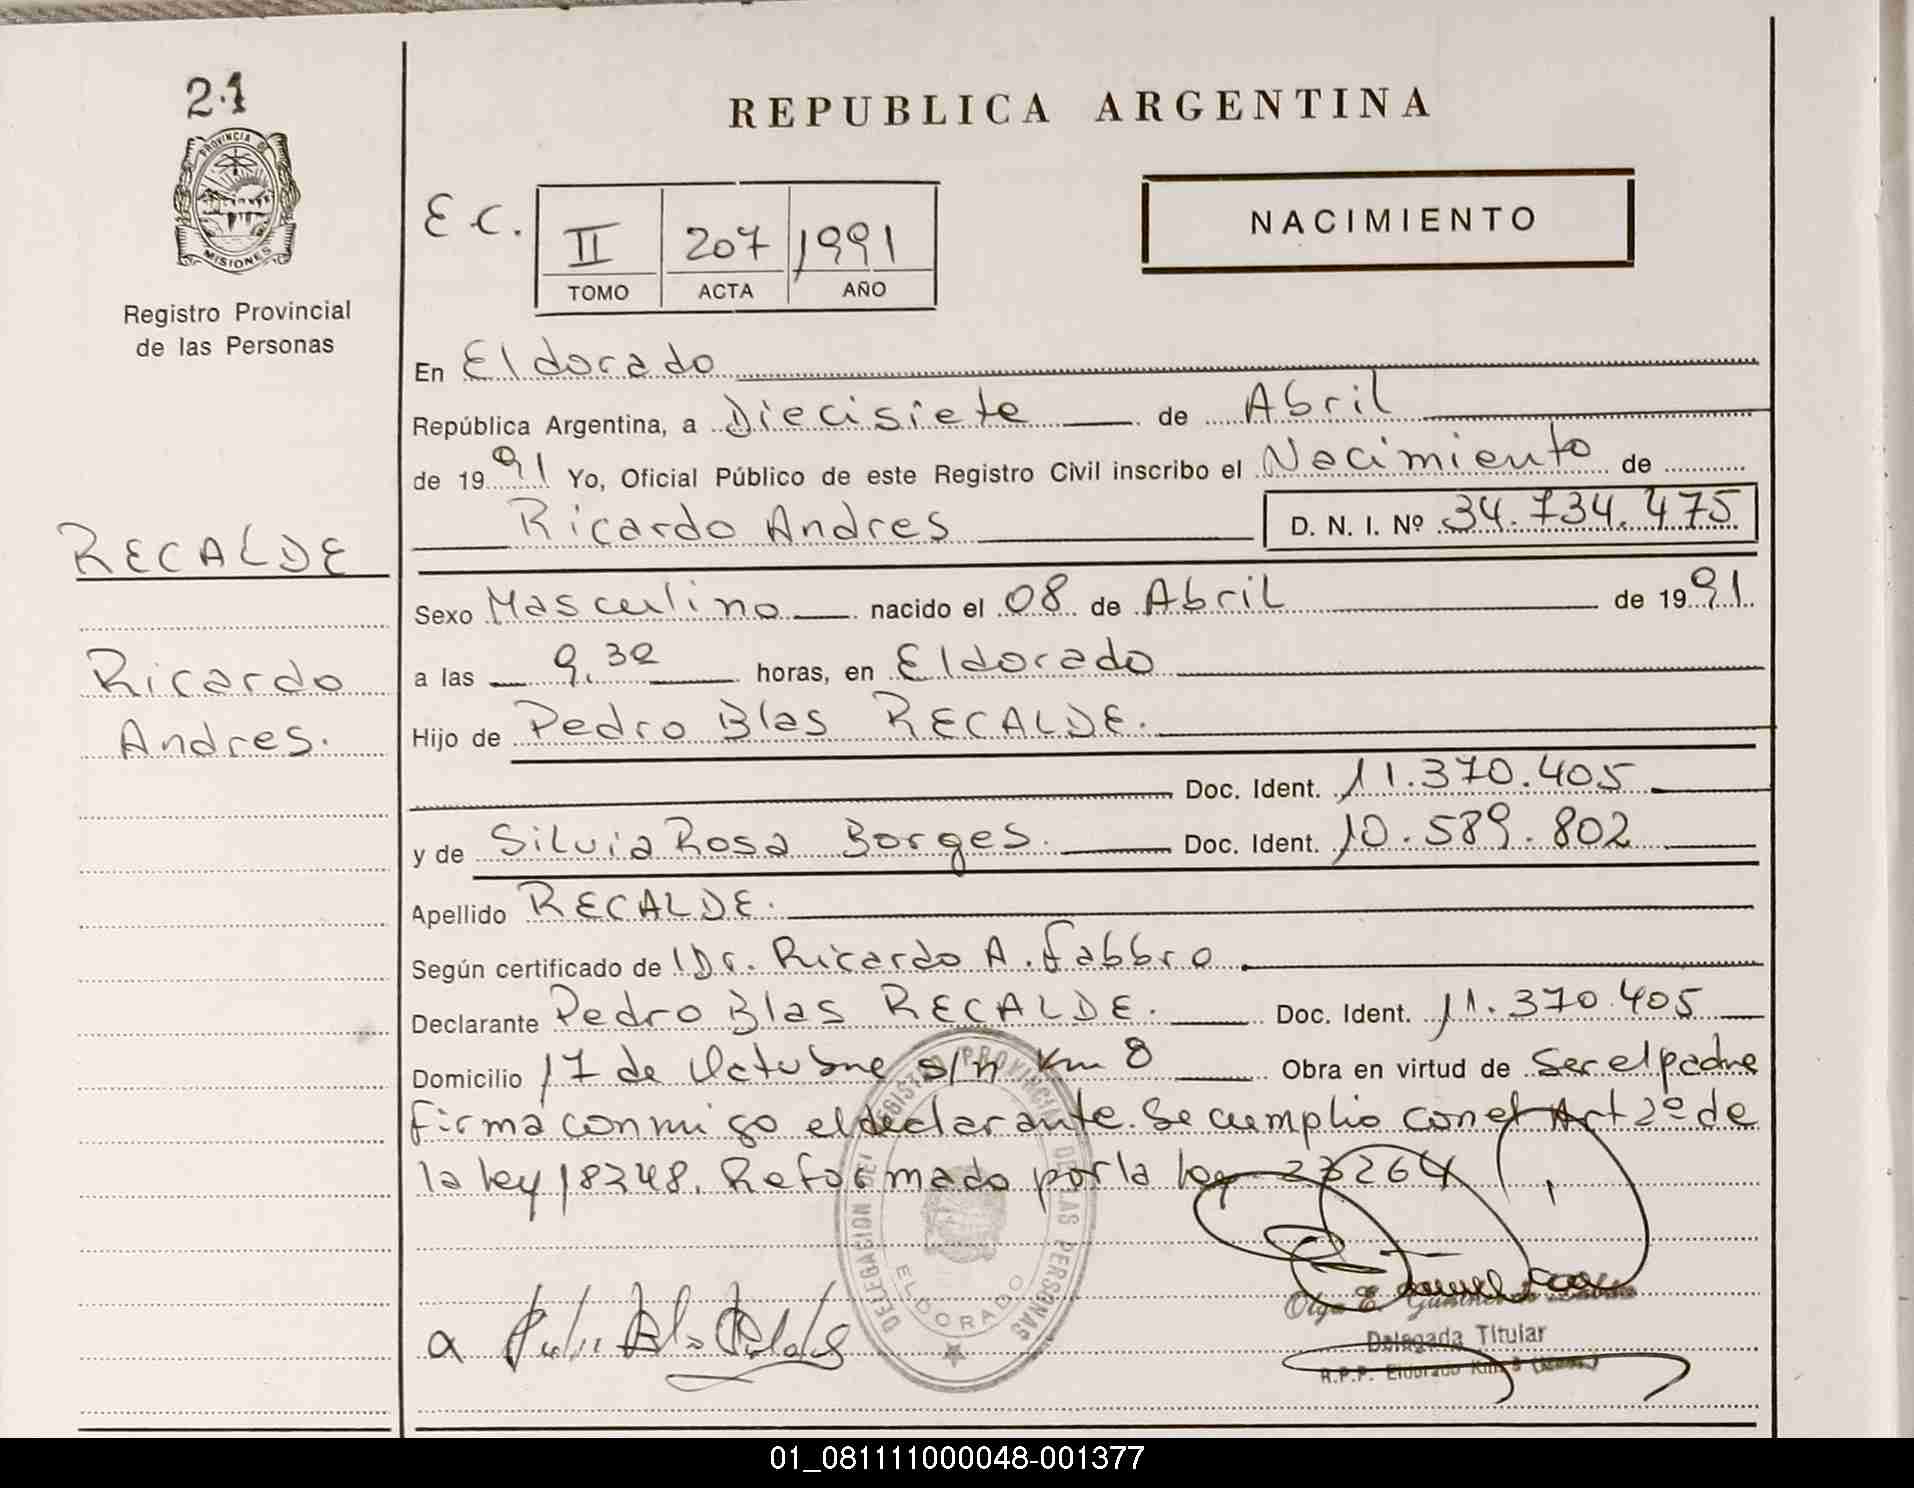 21
PROVINCIA DE
MISIONES
Registro Provincial
de las Personas
RECALDE
Ricardo
Andres.
REPUBLICA ARGENTINA
E C.
II 207 1991
TOMO ACTA AÑO
NACIMIENTO
En Eldorado
República Argentina, a Diecisiete de Abril
de 1991 Yo, Oficial Público de este Registro Civil inscribo el Nacimiento de
Ricardo Andres D. N. I. Nº 34.734.475
Sexo Masculino nacido el 08 de Abril de 1991
a las 9,30 horas, en Eldorado
Hijo de Pedro Blas RECALDE.
Doc. Ident. 11.370.405
y de Silvia Rosa Borges. Doc. Ident. 10.589.802
Apellido RECALDE.
Según certificado de Dr. Ricardo A. Fabbro
Declarante Pedro Blas RECALDE. Doc. Ident. 11.370.405
Domicilio 17 de Octubre s/n Km 8 Obra en virtud de ser el padre
firma conmigo el declarante. Se cumplio con el Art 2º de
la ley 18248. Reformado por la ley 23264
DELEGACION DEL REGISTRO PROVINCIAL DE LAS PERSONAS
ELDORADO
a
Olga E.
Delegada Titular
R.P.P. Eldorado Km. 8
01_081111000048-001377